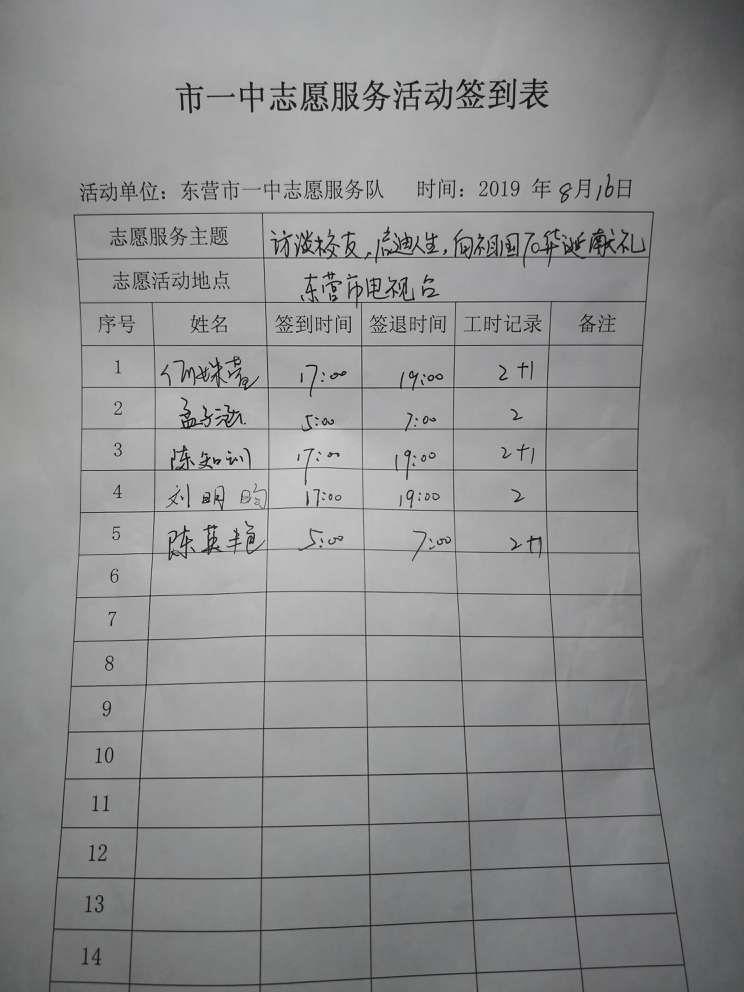 市一中志愿服务活动签到表
活动单位：东营市一中志愿服务队 时间：2019 年 8月16日
志愿服务主题 访谈校友，启迪人生，向祖国70华诞献礼
志愿活动地点 东营市电视台
序号 姓名 签到时间 签退时间 工时记录 备注
1 17:00 19:00 2+1
2 孟子涵 5:00 7:00 2
3 陈知训 17:00 19:00 2+1
4 刘明昀 17:00 19:00 2
5 陈英艳 5:00 7:00 2+1
6
7
8
9
10
11
12
13
14